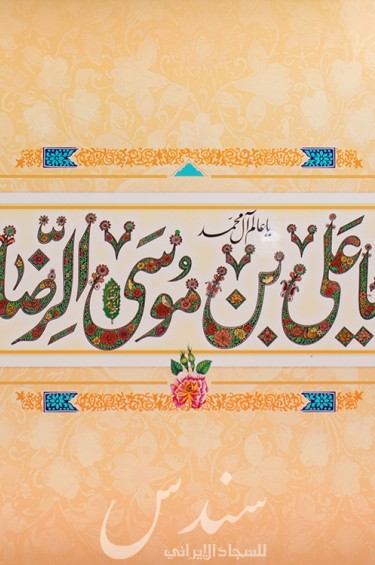 يا عالم آل محمّد
يا على بن موسى الرّضا
سندس
للسجاد الإيراني